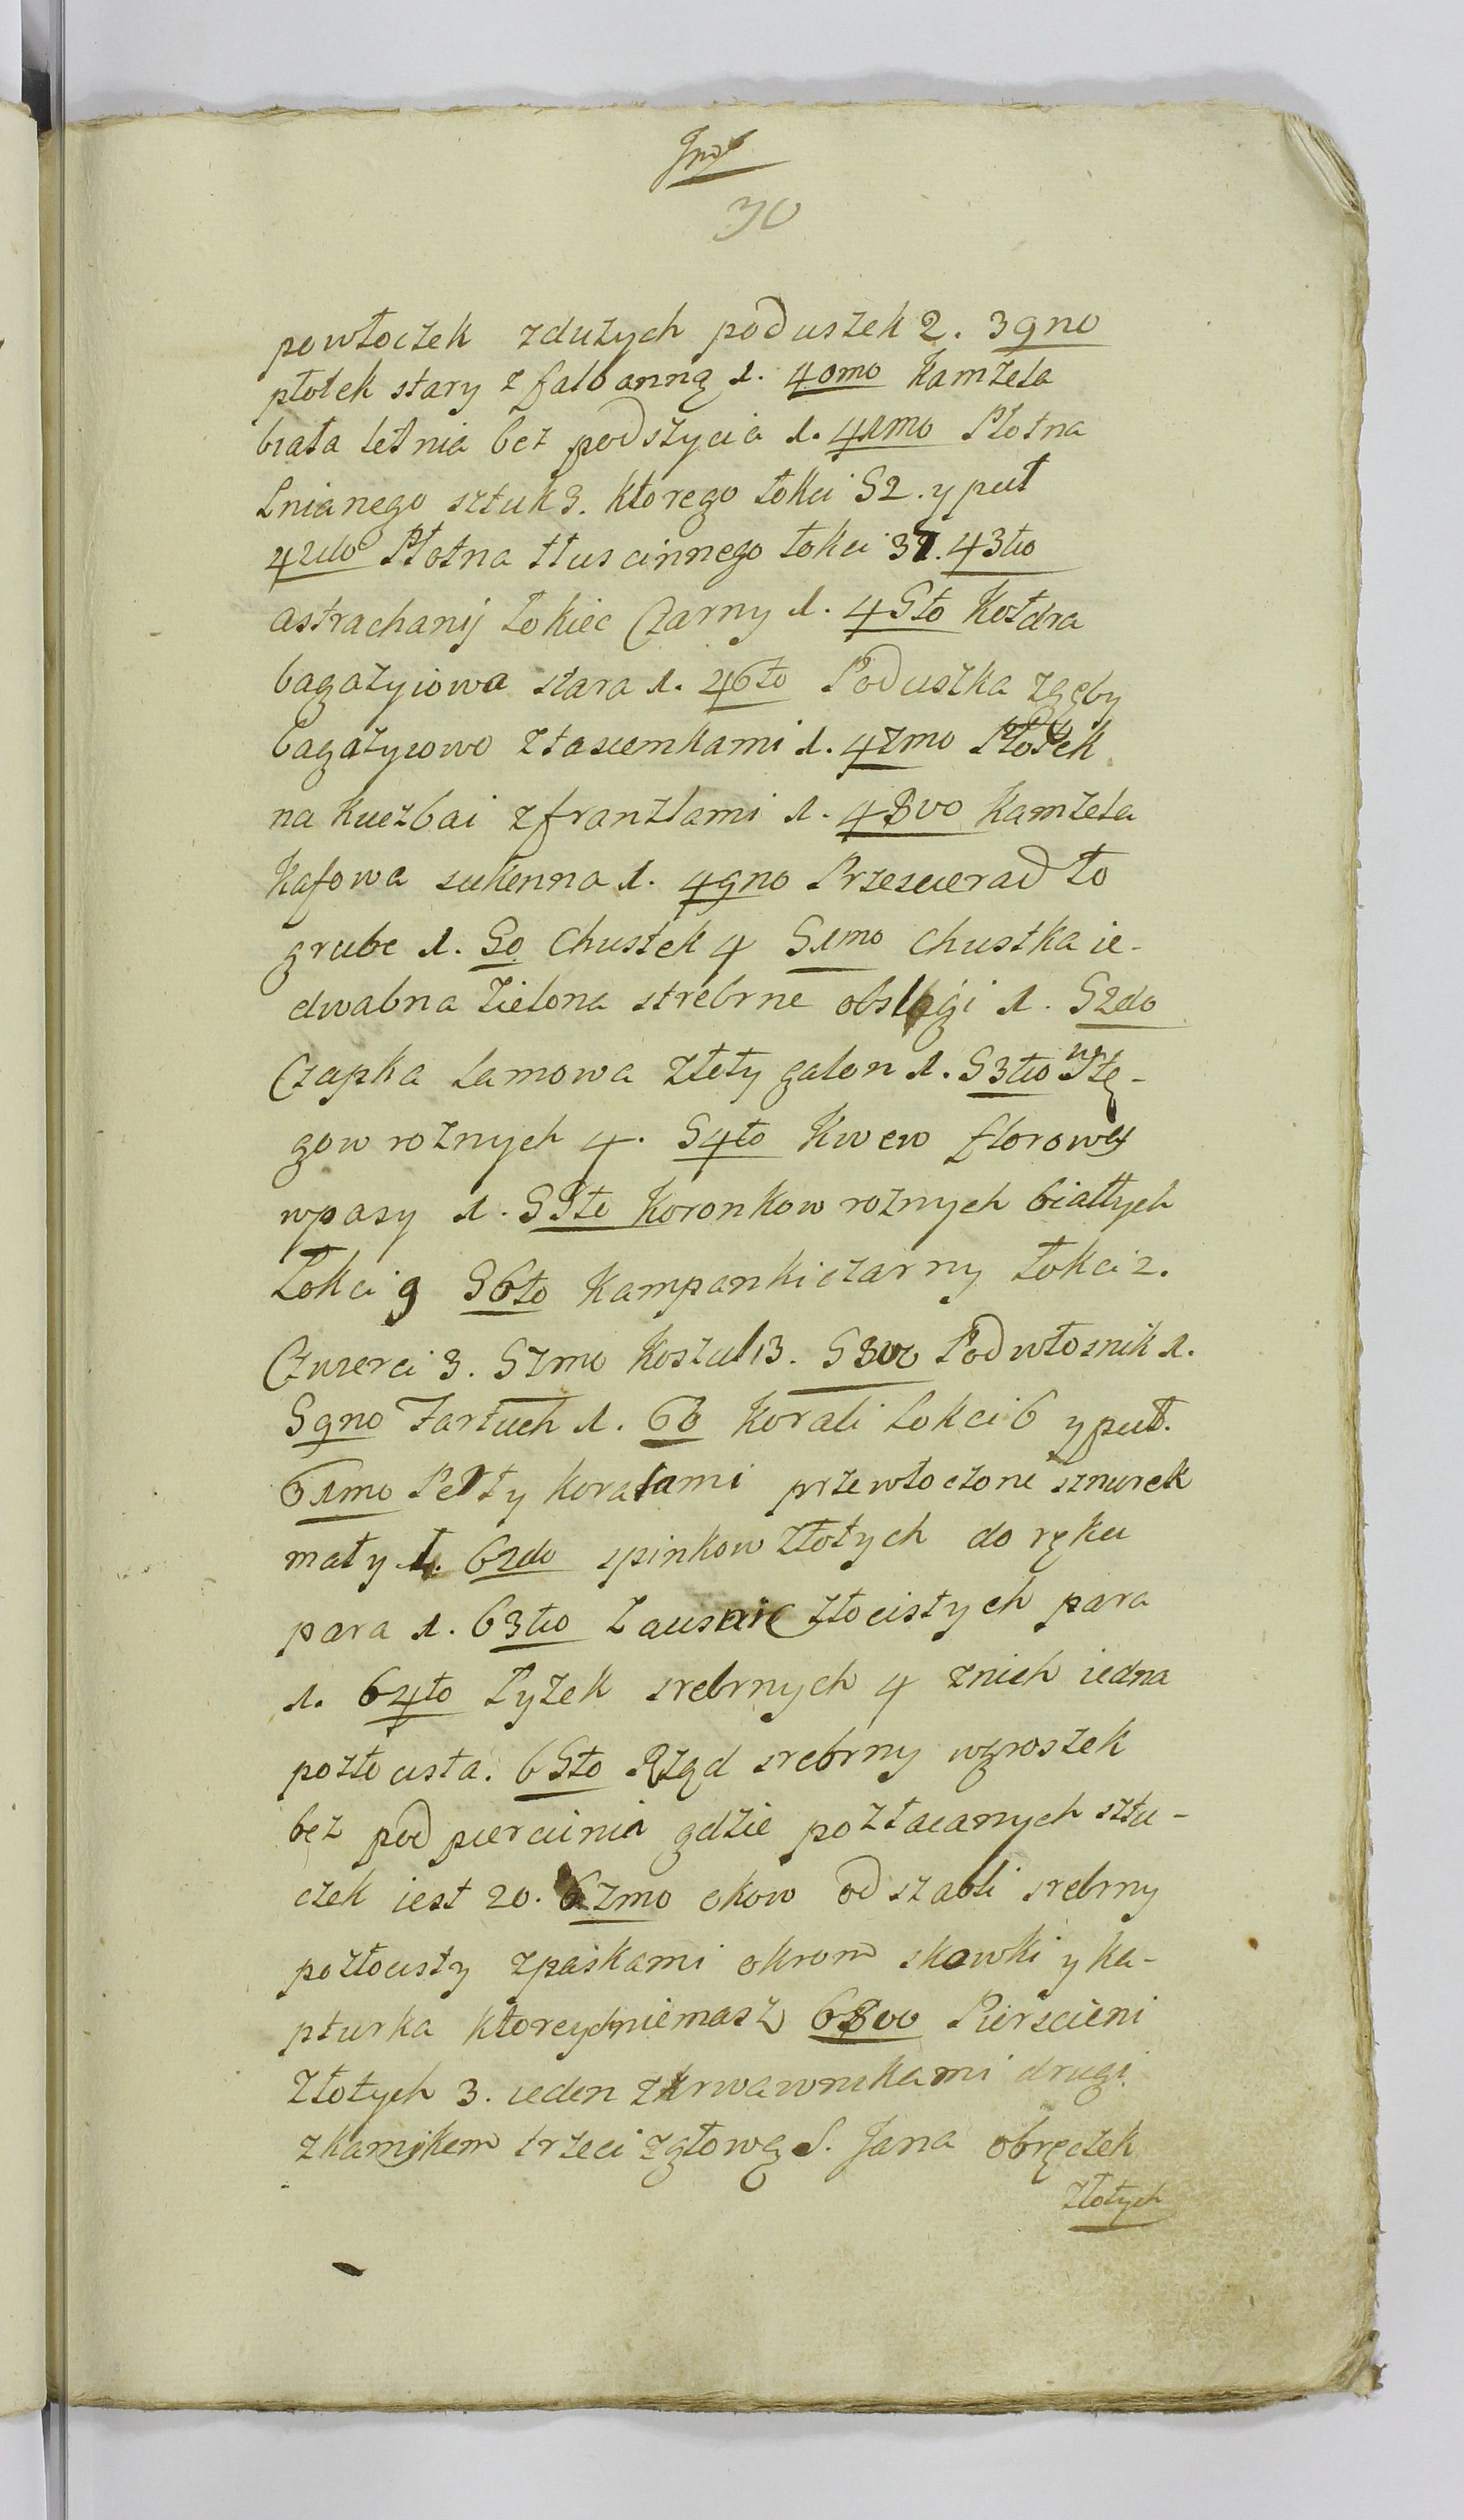 30
powłoczek zduzych poduszek 2. 39no
płotek stary z falbanną 1. 40mo Kamzela
biała letnia bez podszycia 1. 41mo Płotna
Lnianego sztuk 3. ktorego łokci 52. y puł
42do Płotna tłuscinnego łokci 31. 43tio
astrachanij Łokiec Czarny 1. 45to Kołdra
bagazyiowa stara 1. 46to Poduszka zgęby
bagazyiowo ztasiemkami 1. 47mo Płotek
na kuczbai zfranzlami 1. 48vo Kamzela
Kafowa sukenna 1. 49no Przescieradło
grube 1. 50 Chustek 4 51mo chustka ie-
dwabna Zielona strebrne obslagi 1. 52do
Czapka Lamowa Złoty galon 1. 53tio Wstę-
gow roznych 4. 54to Kwew florowy
wpasy 1. 55to Koronkow roznych białłych
Łokci 9 56to Kampanki czarny Łokci 2.
Czwerci 3. 57mo Koszul 13. 58vo Podwłosnik 1.
59no Fartuch 1. 60 Korali Lokci 6 y puł.
61mo Perły koralami przewłoczone sznurek
mały 1. 62do spinkow Złotych do ręku
para 1. 63tio Zausnic złocistych para
1. 64to Łyzek srebrnych 4 znich iedna
pozłocista. 65to Rząd srebrny wgroszek
bez podpiercinia gdzie pozłacanych sztu-
czek iest 20. 67mo okow od szabli srebrny
pozłocisty zpaskami okrom skowki y ka-
pturka ktorychniemasz 68vo Pierscieni
Złotych 3. ieden zkrwawnikami drugi
zkamykem trzeci zgłową S. Jana obrączek
Złotych